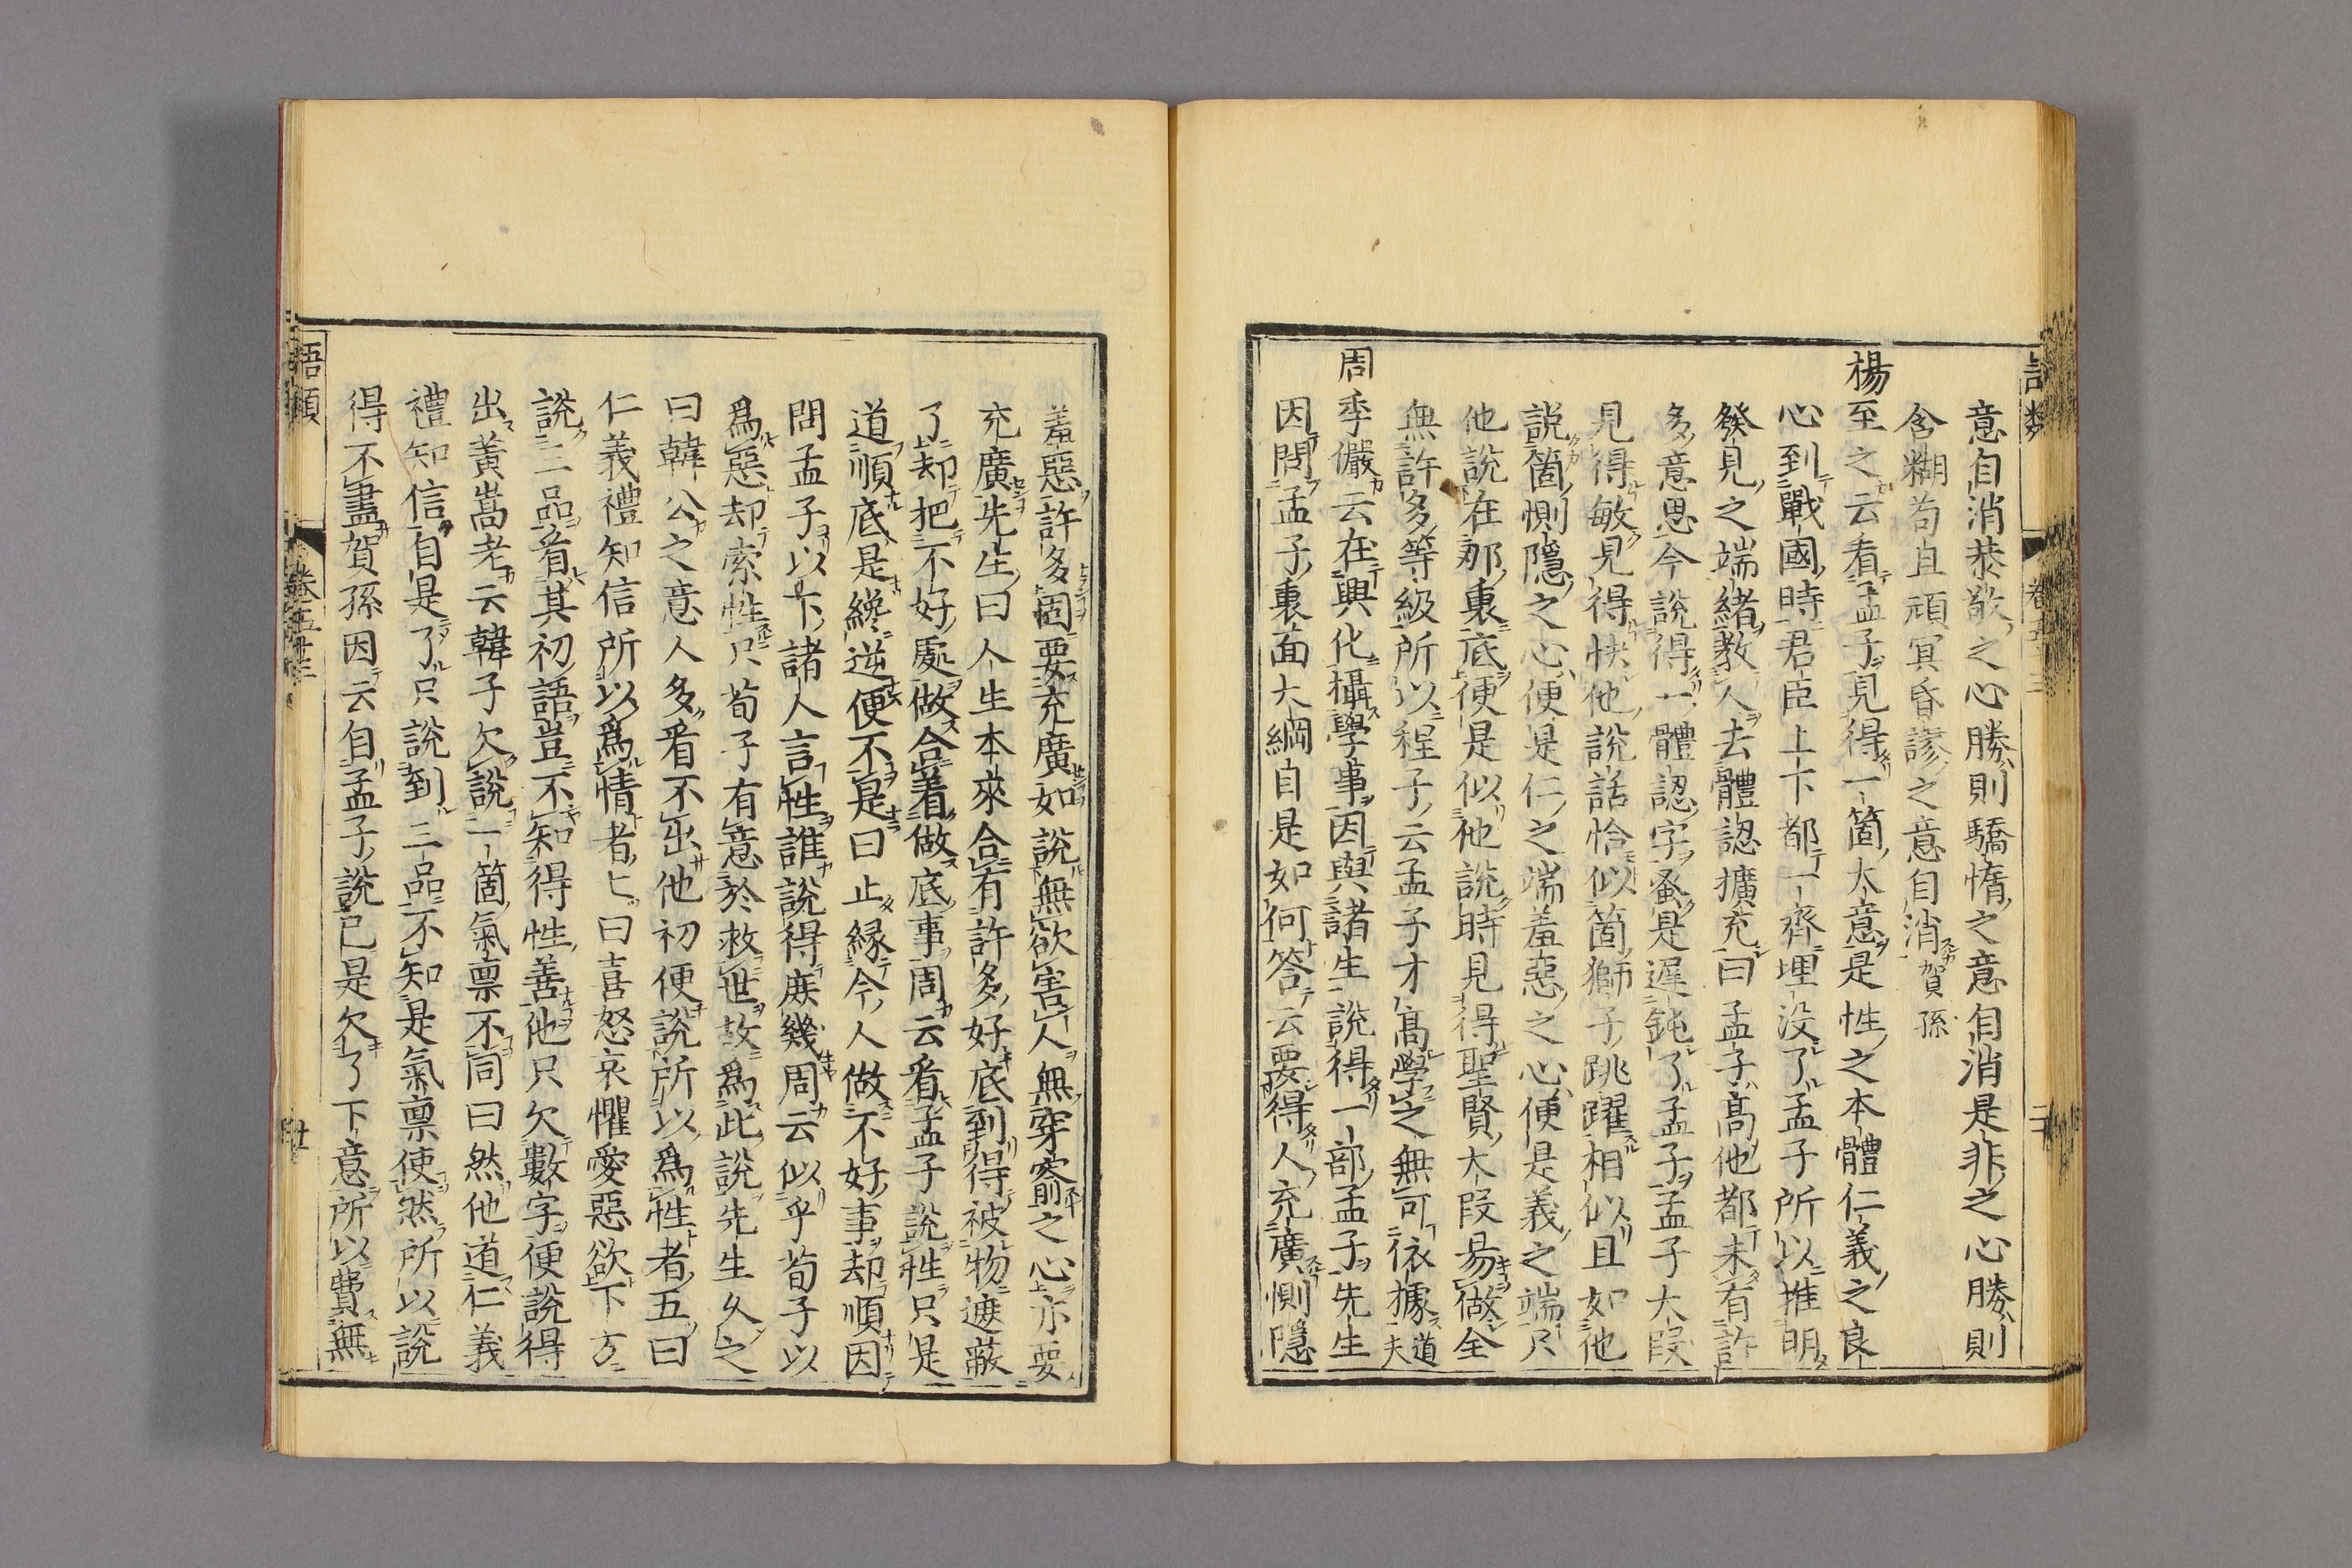 語類
卷五十三
二十
意自消恭敬之心勝則驕惰之意自消是非之心勝則
含糊苟且頑冥昏謬之意自消賀孫
楊至之云看孟子見得一箇大意是性之本體仁義之良
心到戰國時君臣上下都一齊埋没了孟子所以推明
發見之端緒教人去體認擴充曰孟子髙他都未有許
多意思今說得一體認字蚤是遲鈍了孟子孟子大段
見得敏見得快他說話恰似箇獅子跳躍相似且如他
説箇惻隱之心便是仁之端羞惡之心便是義之端只
他說在那裏底便是似他說時見得聖賢大段易做全
無許多等級所以程子云孟子才髙學之無可依據道夫
周季儼云在興化攝學事因與諸生說得一部孟子先生
因問孟子裏面大綱自是如何答云要得人充廣惻隱
羞惡許多固要充廣如說無欲害人無穿窬之心亦要
充廣先生曰人生本來合有許多好底到得被物遮蔽
了却把不好處做合着做底事周云看孟子說性只是
道順底是纔逆便不是曰止緣今人做不好事却順因
問孟子以下諸人言性誰說得庶幾周云似乎荀子以
爲惡却索性只荀子有意於救世故爲此說先生久之
曰韓公之意人多看不出他初便說所以爲性者五曰
仁義禮知信所以爲情者七曰喜怒哀懼愛惡欲下方
說三品看其初語豈不知得性善他只欠數字便說得
出黃嵩老云韓子欠說一箇氣稟不同曰然他道仁義
禮知信自是了只說到三品不知是氣稟使然所以說
得不盡賀孫因云自孟子說已是欠了下意所以費無
語類
卷五十三
廿